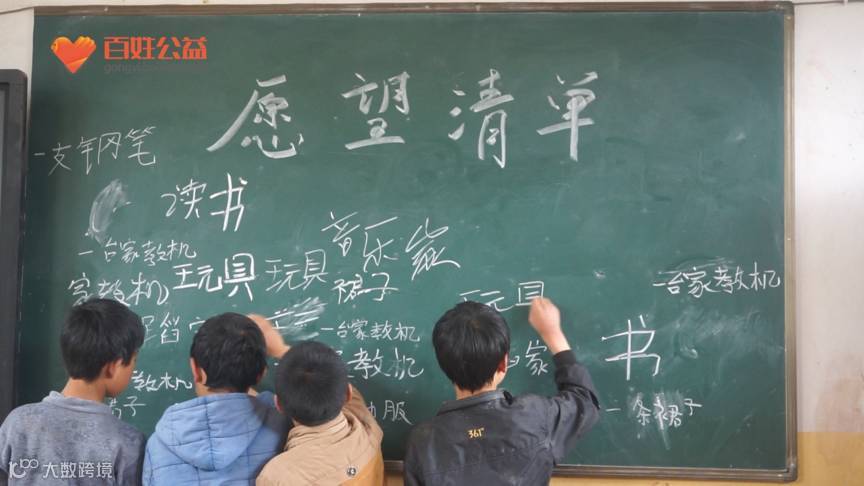 百姓公益
愿望清单
一支钢笔
读书
音乐家
一台家教机
家教机 玩具 玩具 裙子
玩具
一台家教机
一台家教机
教机
书
家
教机
子
服
一条裙子
361°
10100 大数跨境